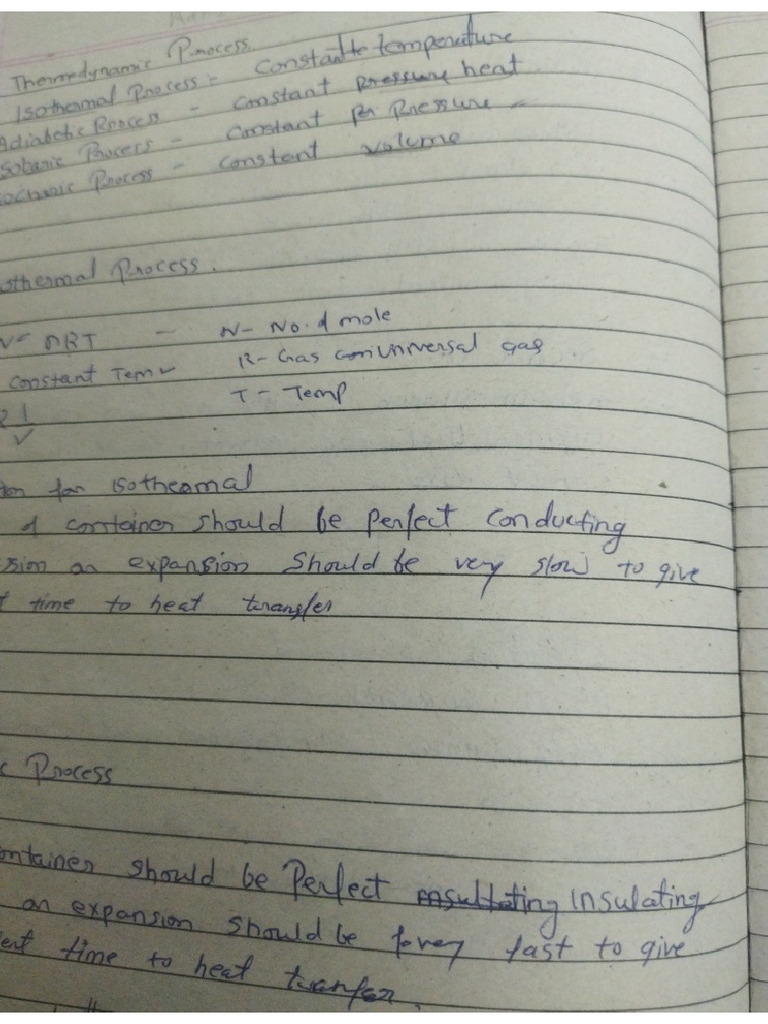 Thermodynamic Process.
Isothermal Process :- Constante temperature
Adiabatic Process - Constant pressure heat
sobaric Process - Constant Pressure -
ochoric Process - Constant volume
othermal Process.
V = nRT - N- No. of mole
Constant Tem R- Gas universal gas
T- Temp
1
V
tion for isothermal
of container should be perfect conducting
sion or expansion should be very slow to give
t time to heat transfer
c Process
ontainer should be Perfect insulating
or expansion should be very fast to give
ent time to heat transfer.